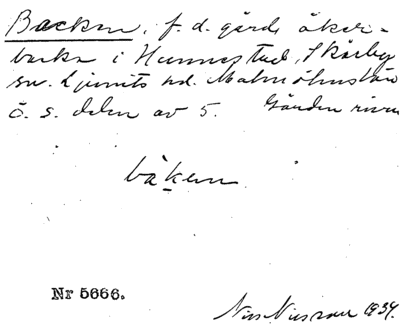 Backen, f. d. gårds åker-
backe i Hunnestad, Skårby
sn. Ljunits hd. Malmöhus län
ö. s. delen av 5. Gården riven
bàken
Nr 5666.
Nils Nilsson 1934.